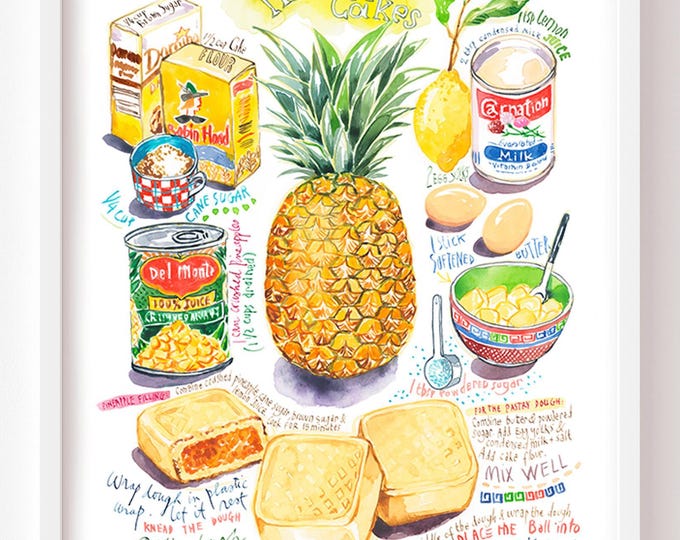 Cakes
1/4 cup
Brown Sugar
1/2 cup Cake
FLOUR
Robin Hood
1/4 CUP
CANE SUGAR
1 tsp lemon
JUICE
2 tbsp condensed milk
Carnation
Evaporated
Milk
Vitamin D added
2 EGG YOLKS
1 STICK
SOFTENED
BUTTER
Del Monte
100% JUICE
CRUSHED PINEAPPLE
1 can crushed Pineapples
(1 1/2 cups drained)
1 tbsp powdered sugar
PINEAPPLE FILLING:
Combine crushed pineapple, cane sugar, brown sugar &
lemon juice. Cook FOR 15 minutes
FOR THE PASTRY DOUGH:
Combine butter & powdered
sugar. Add Egg yolks &
condensed milk + salt
Add cake flour.
MIX WELL
Wrap dough in plastic
wrap. let it rest
KNEAD THE DOUGH
of the dough & wrap the dough
PLACE the Ball into